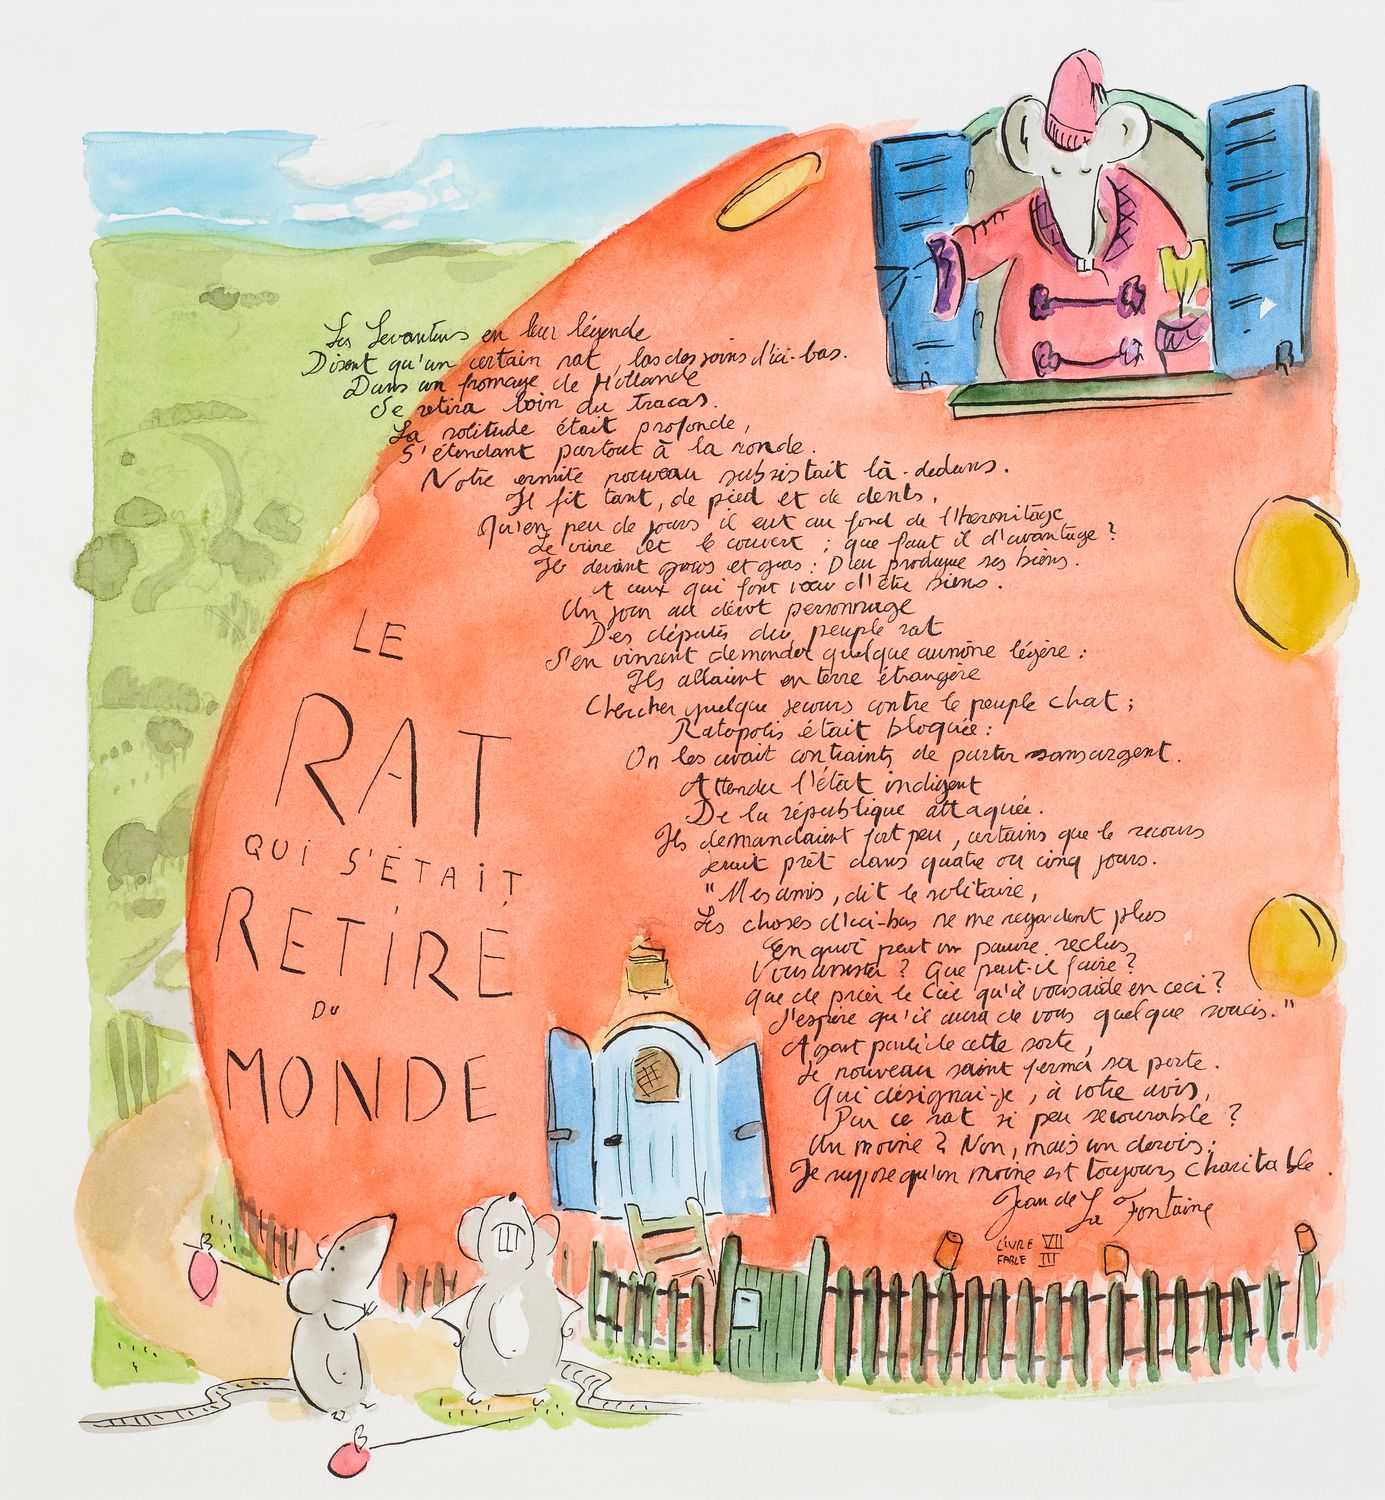 Les Levantins en leur légende
Disent qu'un certain rat, las des soins d'ici-bas.
Dans un fromage de Hollande
Se retira loin du tracas.
La solitude était profonde,
S'étendant partout à la ronde.
Notre ermite nouveau subsistait là-dedans.
Il fit tant, de pied et de dents,
Qu'en peu de jours il eut au fond de l'hermitage
Le vivre et le couvert ; que faut il d'avantage ?
Il devint gros et gras : Dieu prodigue ses biens.
A ceux qui font vœu d'être siens.
Un jour au dévot personnage
Des députés du peuple rat
S'en vinrent demander quelque aumône légère :
Ils allaient en terre étrangère
Chercher quelque secours contre le peuple chat ;
Ratopolis était bloquée :
On les avait contraints de partir sans argent.
Attendu l'état indigent
De la république attaquée.
Ils demandaient fort peu, certains que le recours
serait prêt dans quatre ou cinq jours.
"Mes amis, dit le solitaire,
Les choses d'ici-bas ne me regardent plus
En quoi peut un pauvre reclus
Vous assister ? Que peut-il faire ?
Que de prier le Ciel qu'il vous aide en ceci ?
J'espère qu'il aura de vous quelque soucis."
Ayant parlé de cette sorte,
Le nouveau saint ferma sa porte.
Qui désignai-je, à votre avis,
Par ce rat si peu secourable ?
Un moine ? Non, mais un dervis :
Je suppose qu'un moine est toujours charitable.
Jean de La Fontaine
LIVRE VII
FABLE III
LE
RAT
QUI S'ÉTAIT
RETIRÉ
DU
MONDE